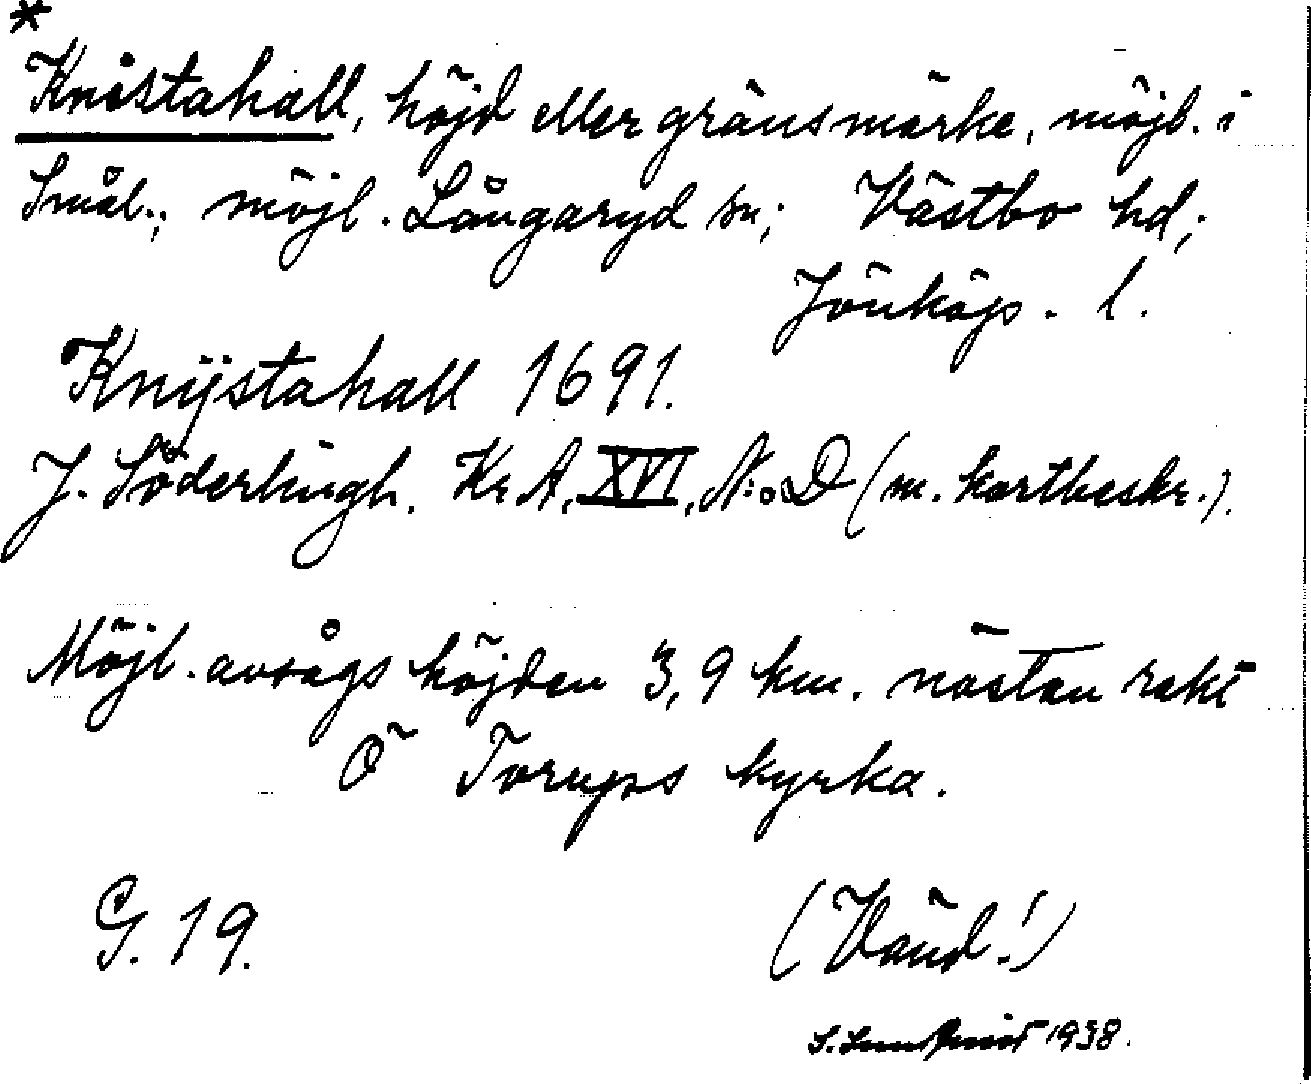 *
Knistahall, höjd eller gränsmärke, möjl. i
Smål.; möjl. Långaryd sn; Västbo hd;
Jönköps. l.
Knÿstahall 1691.
J. Söderlingh. Kr A, XVI, N:o D (m. kartbeskr.).
Möjl. avsågs höjden 3,9 km. nästan rakt
Ö Torups kyrka.
G. 19.
(Vänd!)
S. 1938.